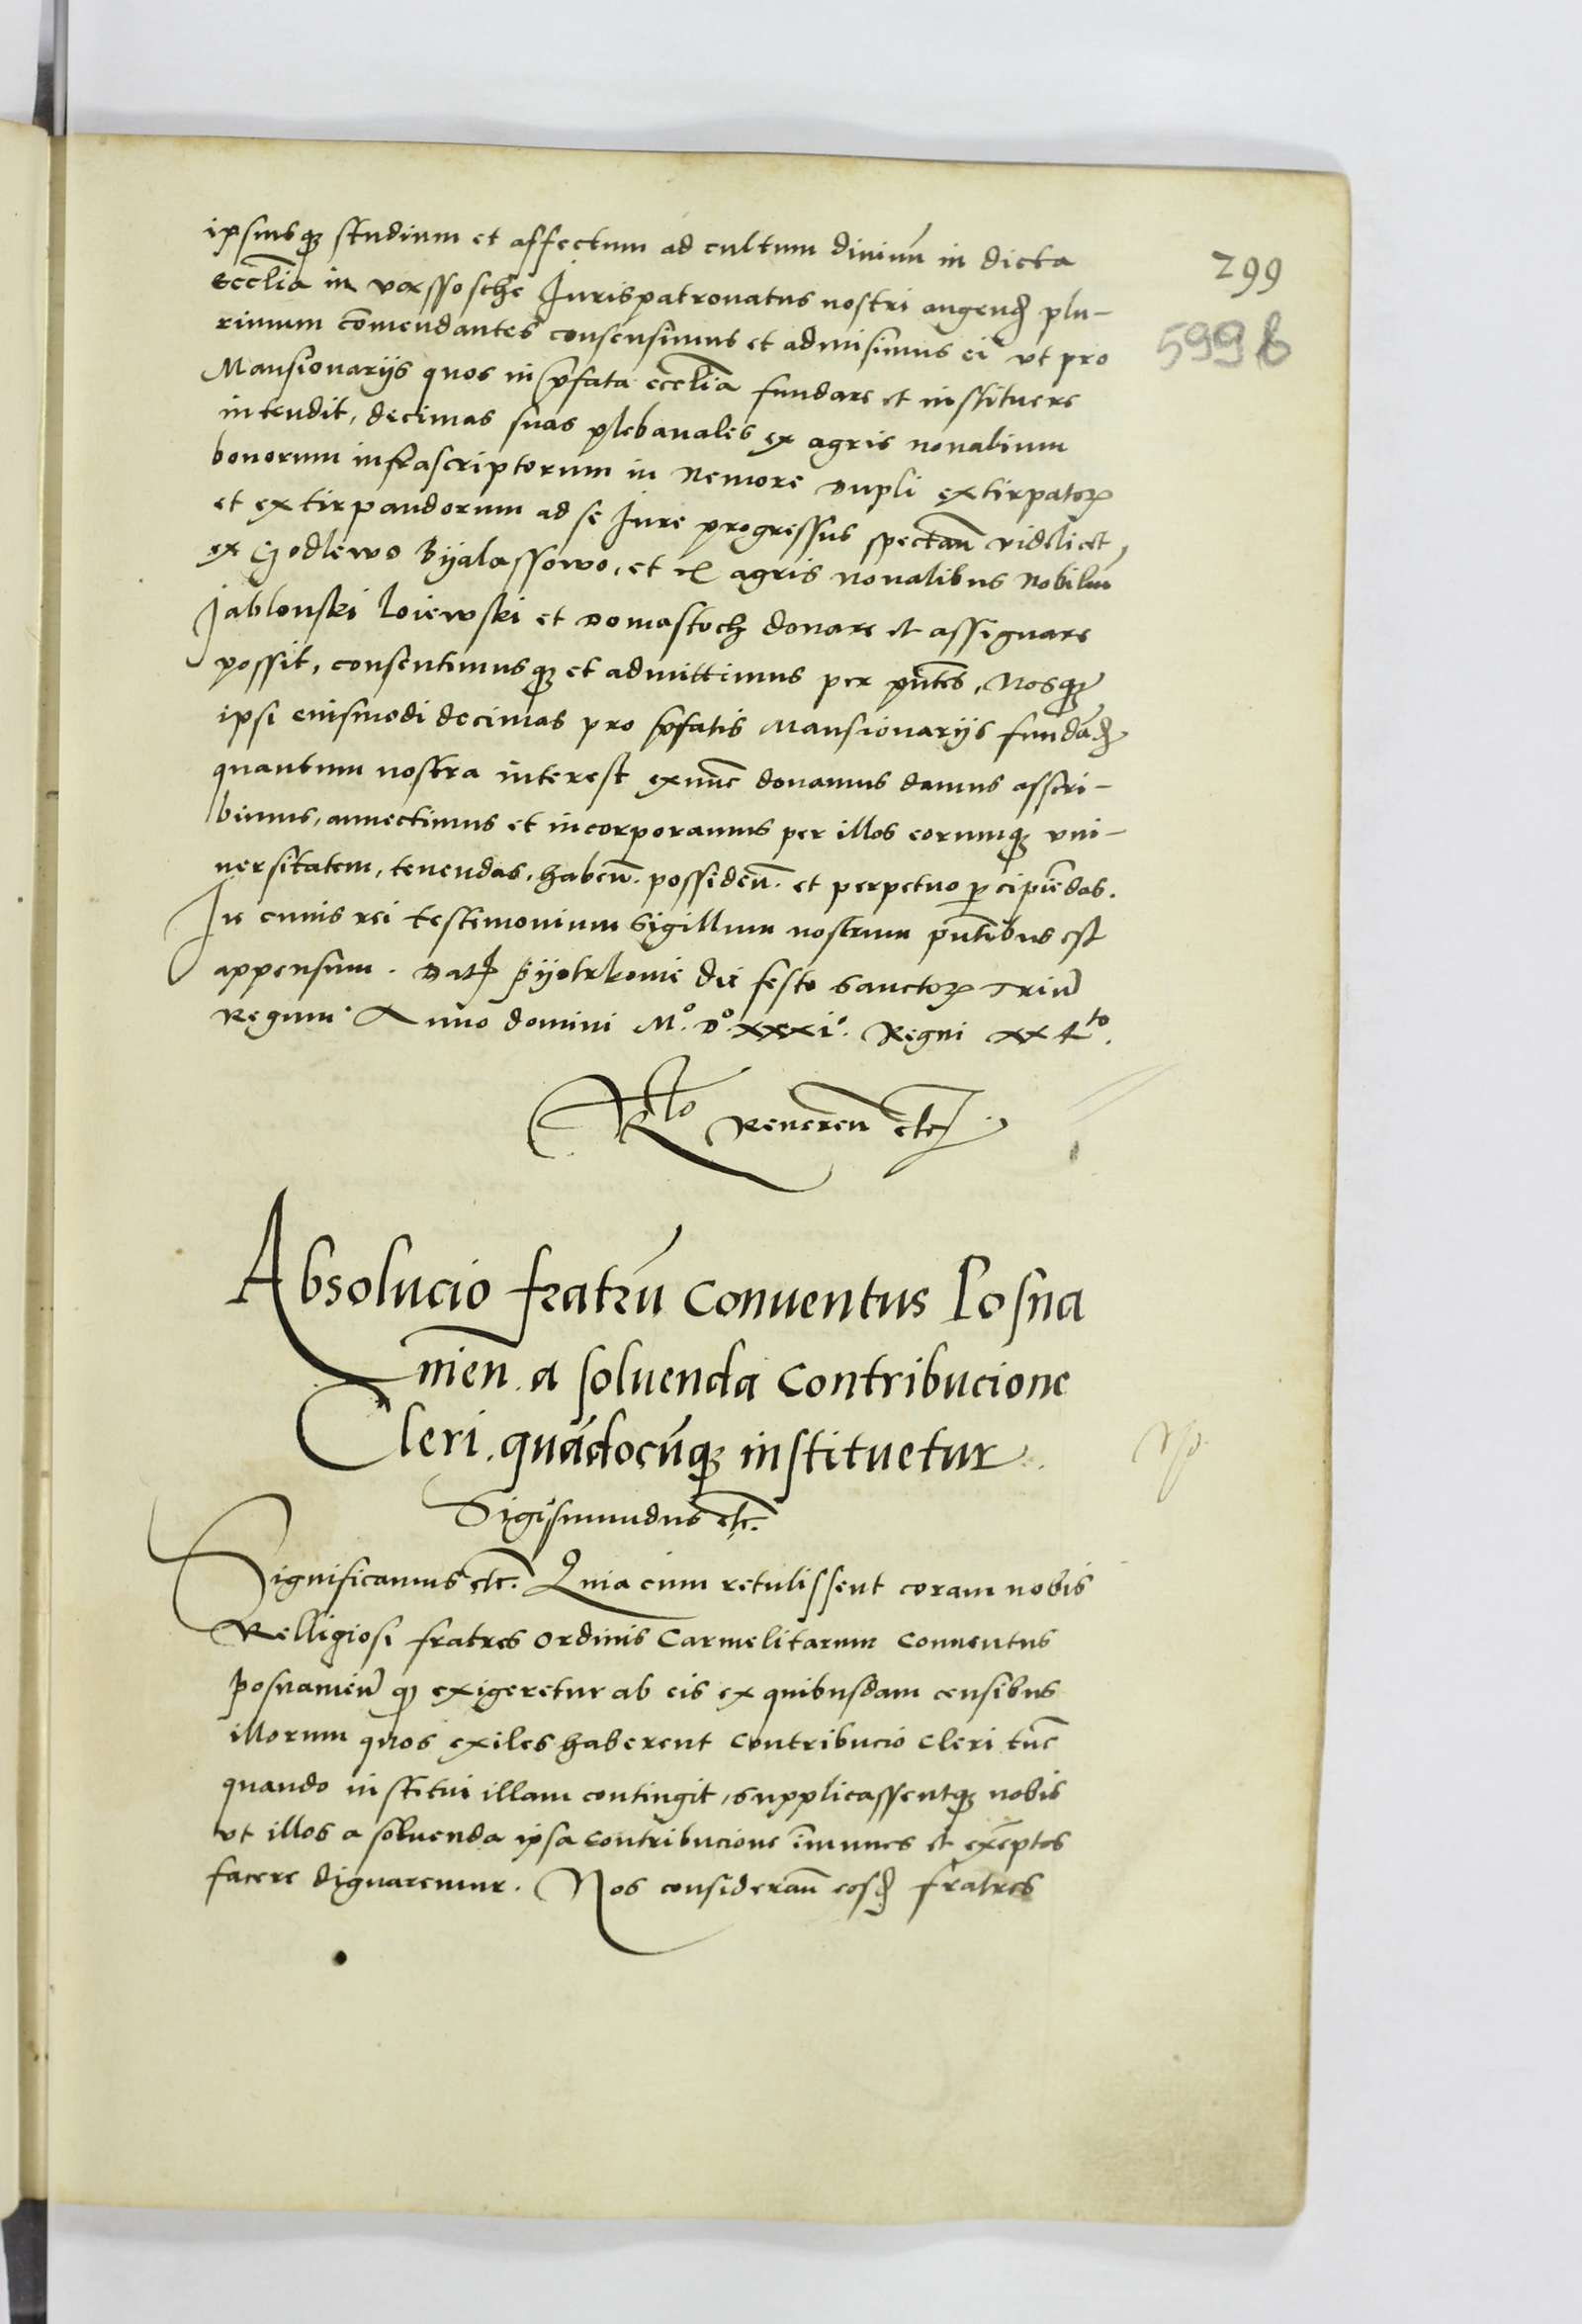 ipsiusq₃ studium et affectum ad cultum diuinū in dicta
Eccl̄ia in vossosche Jurispatronatus nostri augend̄ plu-
rimum com̄endantes consensimus et admisimus ei vt pro
Mansionarijs quos in p̄fata eccl̄ia fundare et instituere
intendit, decimas suas plebanales ex agris noualium
bonorum infrascriptorum in Nemore Dupli extirpatoꝝ
et extirpandorum ad se Jure progressus spectan̄ videlicet,
ex Godlewo Byalassowo, et ex agris noualibus Nobiliū
Jablonski Loiewski et Domastoch donare et assignare
possit, consentimusq₃ et admittimus per pn̄tes, Nosq₃
ipsi euismodi decimas pro p̄fatis Mansionarijs fundan̄d
quantum nostra interest exnūc donamus damus asscri-
bimus, annectimus et incorporamus per illos eorumq₃ vni-
uersitatem, tenendas, haben̄. possiden̄. et perpetuo ꝑcipiēdas.
In cuius rei testimonium Sigillum nostrum pn̄tibus est
appensum. Dat̄ Pyotrkouie die festo Sanctoꝝ Triū
Regum. Anno domini Mº. Dº. xxxiº. Regni xx4to.
R̄lo Reueren̄ etc̄
299
599 b
Absolucio fratrū Conuentus Posna
nien̄. a soluenda Contribucione
Cleri. quādocūq₃ instituetur.
Sigismundus etc̄.
Significamus etc̄. Quia cum retulissent coram nobis
Relligiosi fratres Ordinis Carmelitarum Conuentus
Posnanien̄ q₃ exigeretur ab eis ex quibusdam censibus
illorum quos exiles haberent Contribucio Cleri tūc
quando institui illam contingit, supplicassentq₃ nobis
vt illos a soluenda ipsa contribucione im̄unes et exēptos
facere dignaremur. Nos consideran̄ eosd̄ fratres